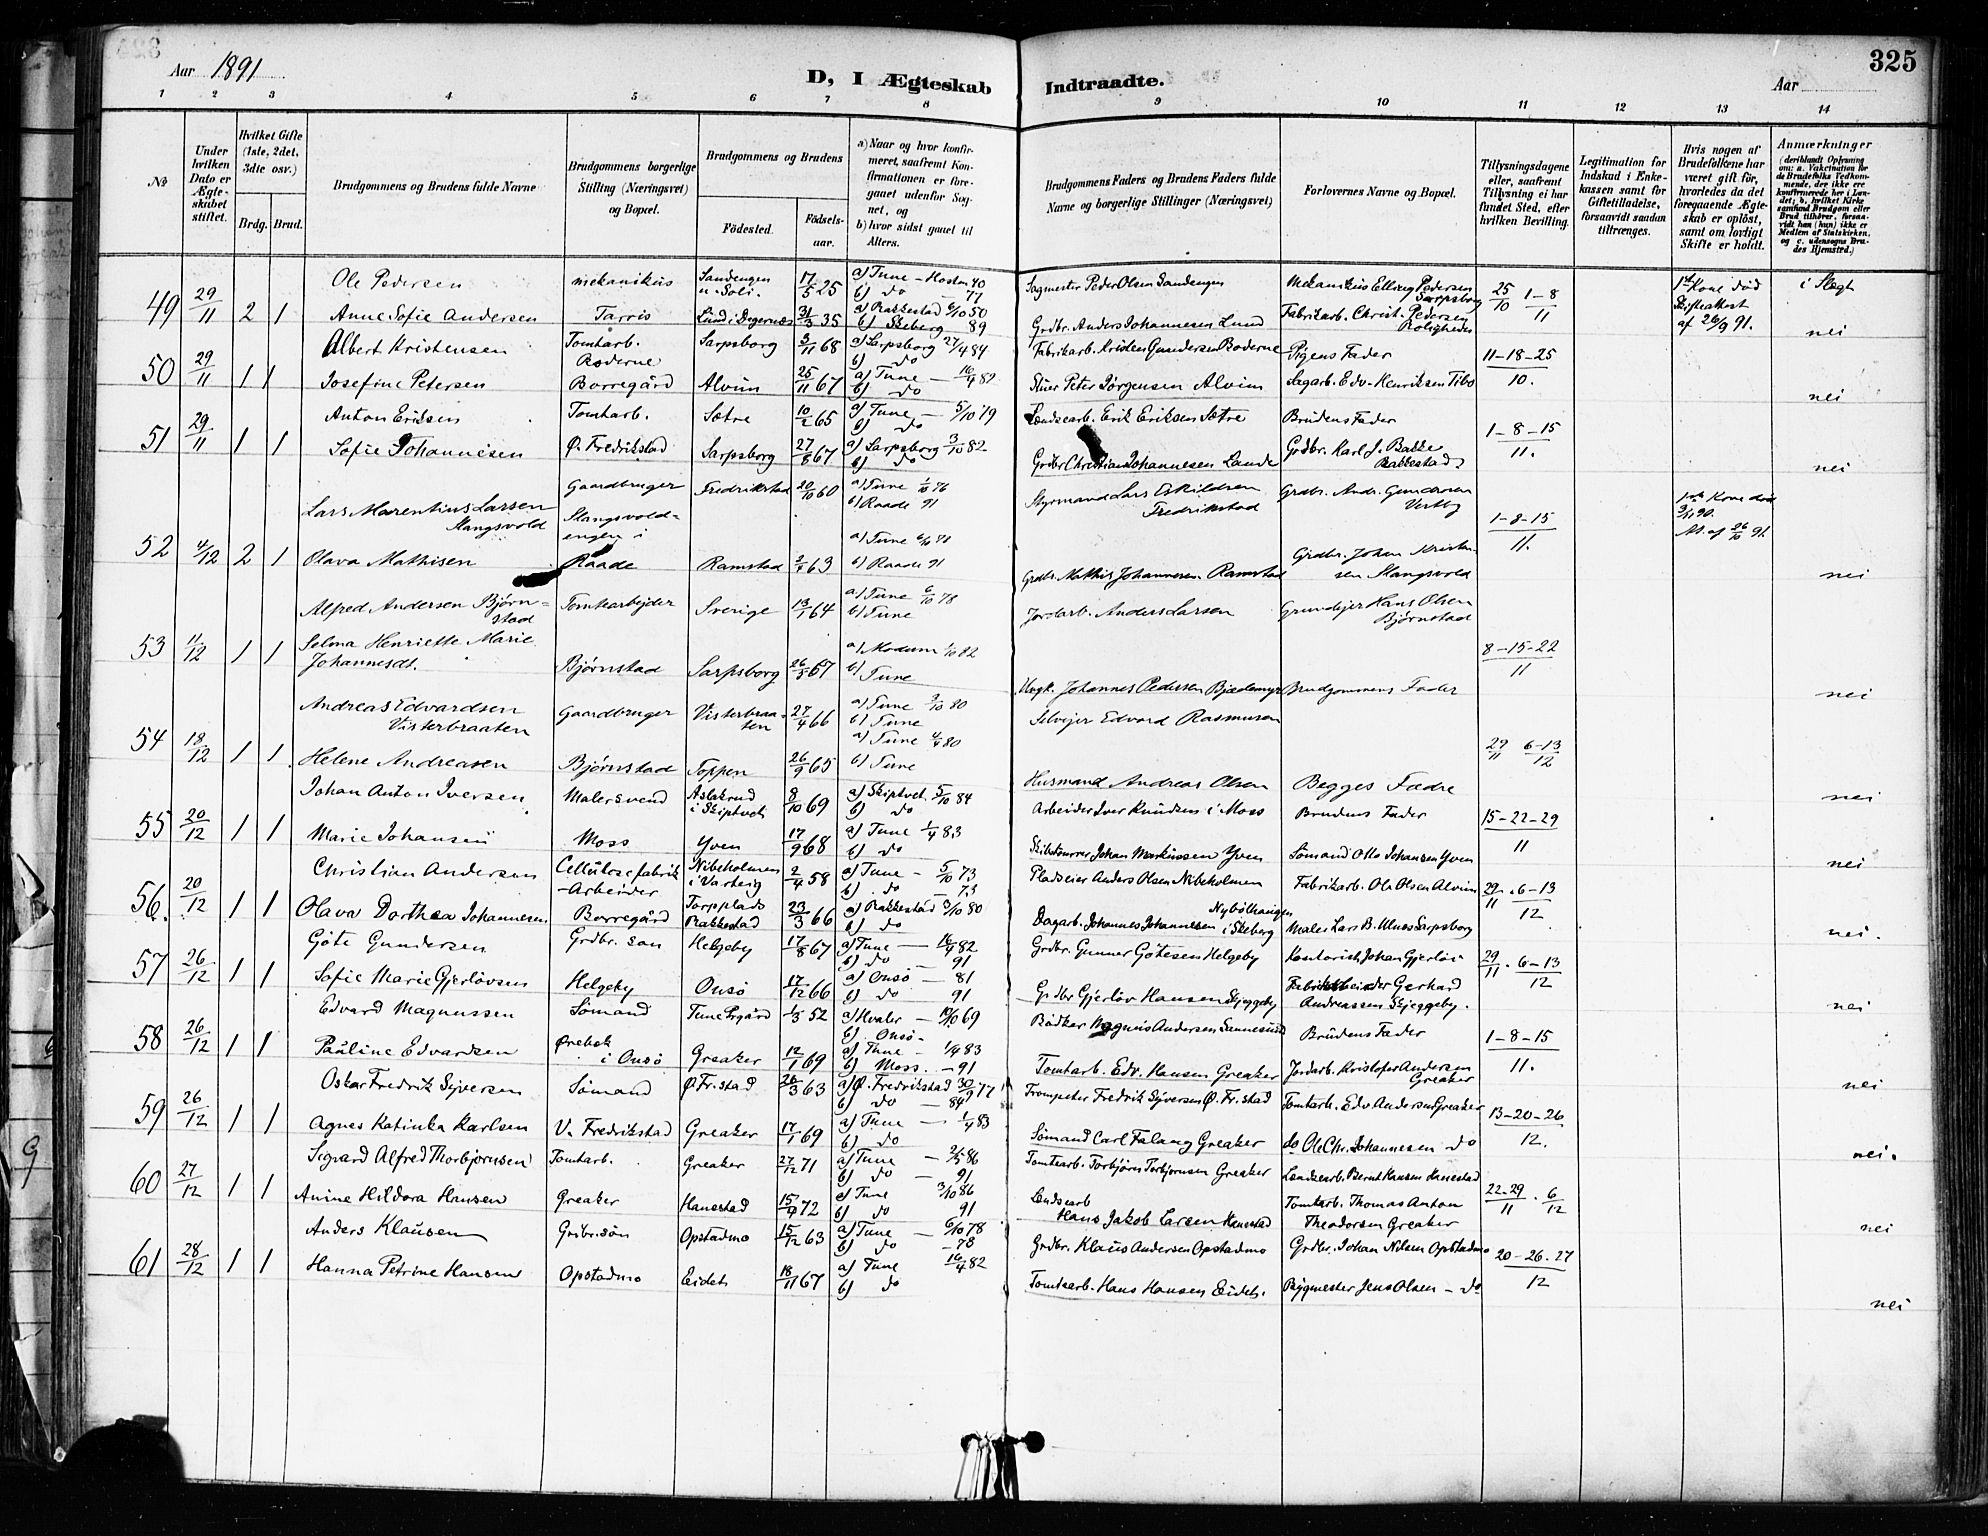 325
Aar 1891
D, I Ægteskab Indtraadte.
Aar
1 2 3 4 5 6 7 8 9 10 11 12 13 14
No
Under hvilken Dato er Ægteskabet stiftet.
Hvilket Gifte (1ste, 2det, 3die osv.)
Brdg. Brud.
Brudgommens og Brudens fulde Navne
Brudgommens borgerlige Stilling (Næringsvei) og Bopæl.
Brudgommens og Brudens
Födested. Födselsaar.
a) Naar og hvor konfirmeret, saafremt Konfirmationen er foregaaet udenfor Sognet, og
b) hvor sidst gaaet til Alters.
Brudgommens Faders og Brudens Faders fulde Navne og borgerlige Stillinger (Næringsvei)
Forlovernes Navne og Bopæl.
Tillysningsdagene eller, saafremt Tillysning ei har fundet Sted, efter hvilken Bevilling.
Legitimation for Indskud i Enkekassen samt for Giftetilladelse, forsaavidt saadan tiltrænges.
Hvis nogen af Brudefolkene har været gift för, hvorledes da det foregaaende Ægteskab er oplöst, samt om lovligt Skifte er holdt.
Anmærkninger
49 29/11 2 1 Ole Pedersen mekanikus Sandengen 17/5 25 a) Tune - Hosten 40 b) do - 77 Sagmester Peder Olsen Sandengen Mekanikus Elling Pedersen Sarpsborg 25/10 1-8/11 1ste Kone död af 26/9 91. i Slegt
Anne Sofie Andersen Tarris Lund i Degernæs 31/3 35 a) Rakkestad 6/10 50 b) Skeberg 89 Grdbr. Anders Johannesen Lund Fabrikarb. Christ. Pedersen Roligheden nei
50 29/11 1 1 Albert Kristensen Tomtarb. Roderne Sarpsborg 3/11 68 a) Sarpsborg 27/4 84 b) do Fabrikarb. Kristen Gundersen Roderne Pigens Fader 11-18-25/10.
Josefine Petersen Borregård Alvim 25/11 67 a) Tune - 16/4 82 b) do Peter Jörgensen Alvim Sagarb. Edv. Henriksen Tibo nei
51 29/11 1 1 Anton Eriksen Tomtarb. Sætre 10/2 65 a) Tune - 5/10 79 b) do Lendsearb. Erik Eriksen Sætre Brudens Fader 1-8-15/11.
Sofie Johannesen Ø. Fredrikstad Sarpsborg 27/8 67 a) Sarpsborg 3/10 82 b) do Grdbr Christian Johannesen Lande Grdbr. Karl J. Bakke Rakkestad nei
52 4/12 2 1 Lars Marentius Larsen Slangsvold Gaardbruger Slangsvoldengen i Fredrikstad 20/10 60 a) Tune 1/10 76 b) Raade 91 Styrmand Lars Eskildsen Fredrikstad Grdbr. Andr. Gundersen Vestby 1-8-15/11. 1ste Kone död 3/11 90. Att. af 26/10 91.
Olava Mathisen Raade Ramstad 2/4 63 a) Tune b) Raade 91 Grdbr. Mathis Johannesen Ramstad Grdbr. Johan Kristensen Slangsvold nei
53 11/12 1 1 Alfred Andersen Bjørnstad Tomtarbejder Sverige 13/1 64 a) Tune 6/10 78 b) Tune Jordarb. Anders Larsen Grundejer Hans Olsen Bjørnstad 8-15-22/11
Selma Henriette Marie Johannesdt. Bjørnstad Sarpsborg 26/5 67 a) Modum 1/10 82 b) Tune Ungk. Johannes Pedersen Bjædemyr Brudgommens Fader nei
54 18/12 1 1 Andreas Edvardsen Visterbraaten Gaardbruger Visterbraaten 27/4 66 a) Tune 3/10 80 b) Tune Selvejer Edvard Rasmusen 29/11 6-13/12
Helene Andreasen Bjørnstad Toppen 26/9 65 a) Tune 4/4 80 b) Tune Husmand Andreas Olsen Begges Fædre nei
55 20/12 1 1 Johan Anton Iversen Malersvend Aslakrud i Skiptvet 8/10 69 a) Skiptvet 5/10 84 b) do Arbeider Iver Knudsen i Moss Brudens Fader 15-22-29/11
Marie Johansen Moss Yven 17/9 68 a) Tune 1/4 83 b) do Skibstømrer Johan Markussen Yven Sömand Otto Johansen Yven nei
56. 20/12 1 1 Christian Andersen Cellulosefabrik-Arbeider Nibeholmen i Varteig 2/4 58 a) Tune - 5/10 73 b) do - 73 Pladseier Anders Olsen Nibeholmen Fabrikarb. Ole Olsen Alvim 29/11. 6-13/12
Olava Dorthea Johannesen Borregård Torpplads Rakkestad 23/3 66 a) Rakkestad 3/10 80 b) do Dagarb. Johannes Johannesen Nybölhaugen i Skeberg Maler Lars B. Ulnes Sarpsborg nei.
57 26/12 1 1 Göte Gundersen Grdbr. sön Helgeby 17/8 67 a) Tune - 16/4 82 b) do - 91 Grdbr. Gunner Götesen Helgeby Kontorist Johan Gjerlöv 29/11. 6-13/12
Sofie Marie Gjerlövsen Helgeby Onsö 17/12 66 a) Onsö - 81 b) do 91 Grdbr Gjerlöv Hansen Skjeggeby Fabrikarbeider Gerhard Andreassen Skjeggeby. nei
58 26/12 1 1 Edvard Magnussen Sömand Tune Prgård 1/3 52 a) Hvaler - 10/10 69 b) Onsö - Bödker Magnus Andersen Sannesund Brudens Fader 1-8-15/11.
Pauline Edvardsen Ørebek i Onsö Greaker 12/1 69 a) Tune - 1/4 83 b) Moss. - 91 Tomtarb. Edv. Hansen Greaker Jordarb. Kristofer Andersen Greaker nei
59 26/12 1 1 Oskar Fredrik Syversen Sömand Ø Fr.stad 26/3 63 a) Ø. Fredrikstad 30/9 77 b) do - 84 Trompeter Fredrik Syversen Ø. Fr. stad Tomtarb. Edv Andersen Greaker 13-20-26/12.
Agnes Katinka Karlsen V. Fredrikstad Greaker 17/1 69 a) Tune - 1/4 83 b) do Sömand Carl Falang Greaker do Ole Chr. Johannesen do nei.
60 27/12 1 1 Sigvard Alfred Thorbjørnsen Tomtarb. Greaker 27/12 71 a) Tune - 2/5 86 b) do - 91 Tomtearb. Torbjörn Torbjørnsen Greaker Lendsearb. Bernt Hansen Hanestad 22-29/11. 6/12
Anine Hildora Hansen Greaker Hanestad 15/4 72 a) Tune 3/10 86 b) do 91 Lendsearb Hans Jakob Larsen Hanestad Tomtarb. Thomas Anton Theodorsen Greaker nei
61 28/12 1 1 Anders Klausen Grdbr.sön Opstadmo 15/12 63 a) Tune - 6/10 78 b) do - 78 Grdbr. Klaus Andersen Opstadmo Grdbr. Johan Nilsen Opstadmo 20-26-27/12
Hanna Petrine Hansen Opstadmo Eidet 18/11 67 a) Tune 16/4 82 b) do Tomtearb. Hans Hansen Eidet. Bygmester Jens Olsen - do nei